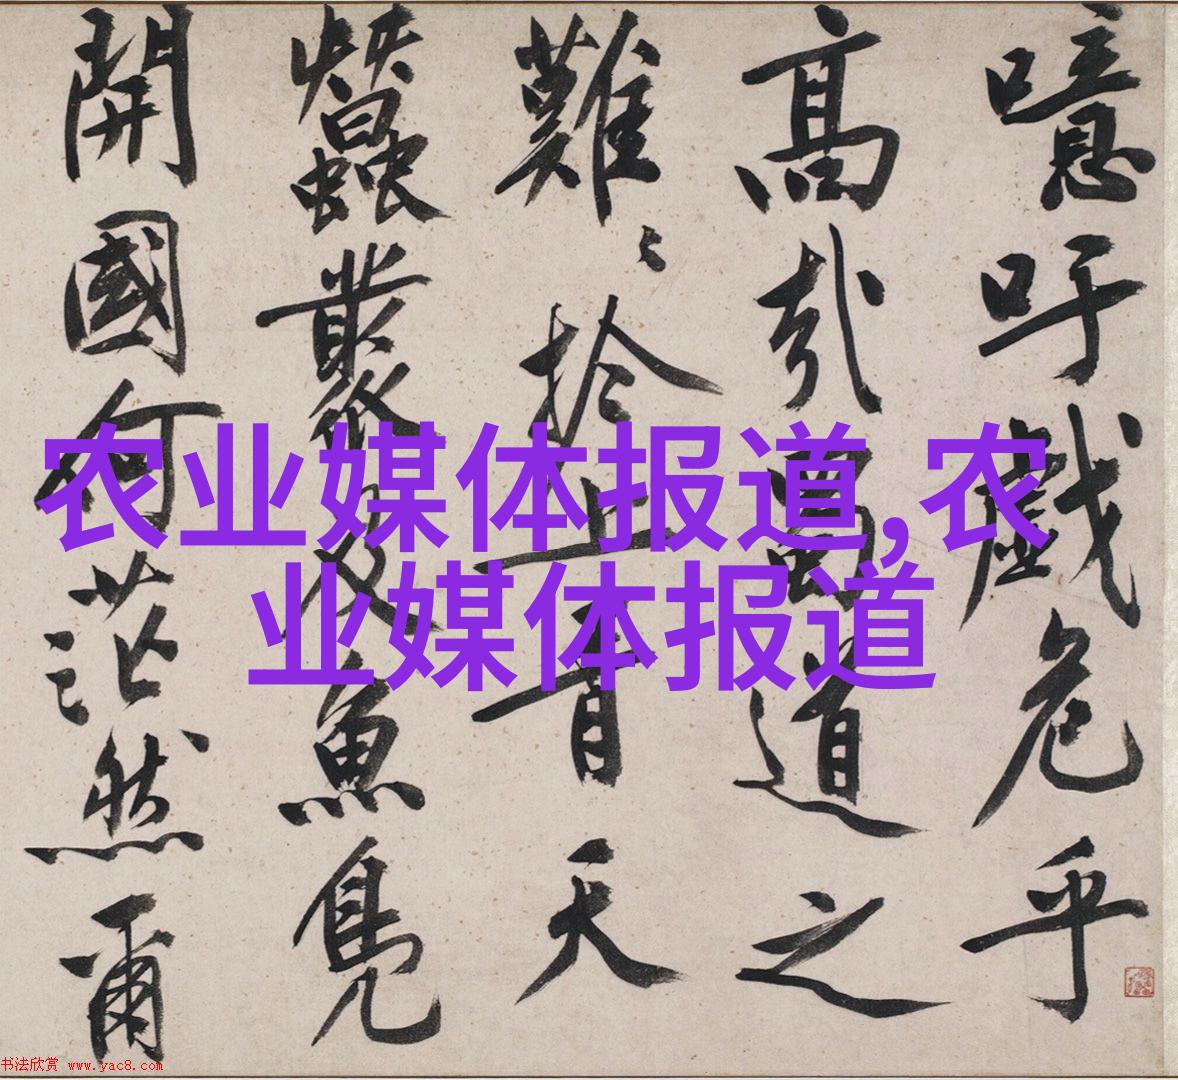 噫吁戲危乎
高哉蜀道之
難〻於上青天
蠶叢及魚鳧
開國何茫然爾
农业媒体报道,农
业媒体报道
书法欣赏 www.yac8.com